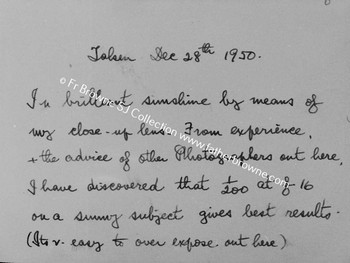 Taken Dec 28th 1950.
In brilliant sunshine by means of
my close-up lens. From experience,
+ the advice of other Photographers out here,
I have discovered that 1/200 at f-16
on a sunny subject gives best results.
(Its v. easy to over expose out here)
© Fr Browne SJ Collection www.fatherbrowne.com